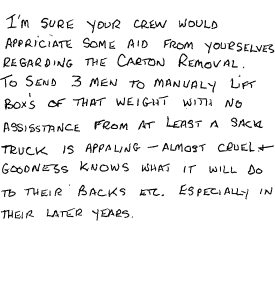 I'M SURE YOUR CREW WOULD
APPRICIATE SOME AID FROM YOURSELVES
REGARDING THE CARTON REMOVAL.
TO SEND 3 MEN TO MANUALY LIFT
BOX'S OF THAT WEIGHT WITH NO
ASSISSTANCE FROM AT LEAST A SACK
TRUCK IS APPALING – ALMOST CRUEL +
GOODNESS KNOWS WHAT IT WILL DO
TO THEIR BACKS ETC. ESPECIALLY IN
THEIR LATER YEARS.